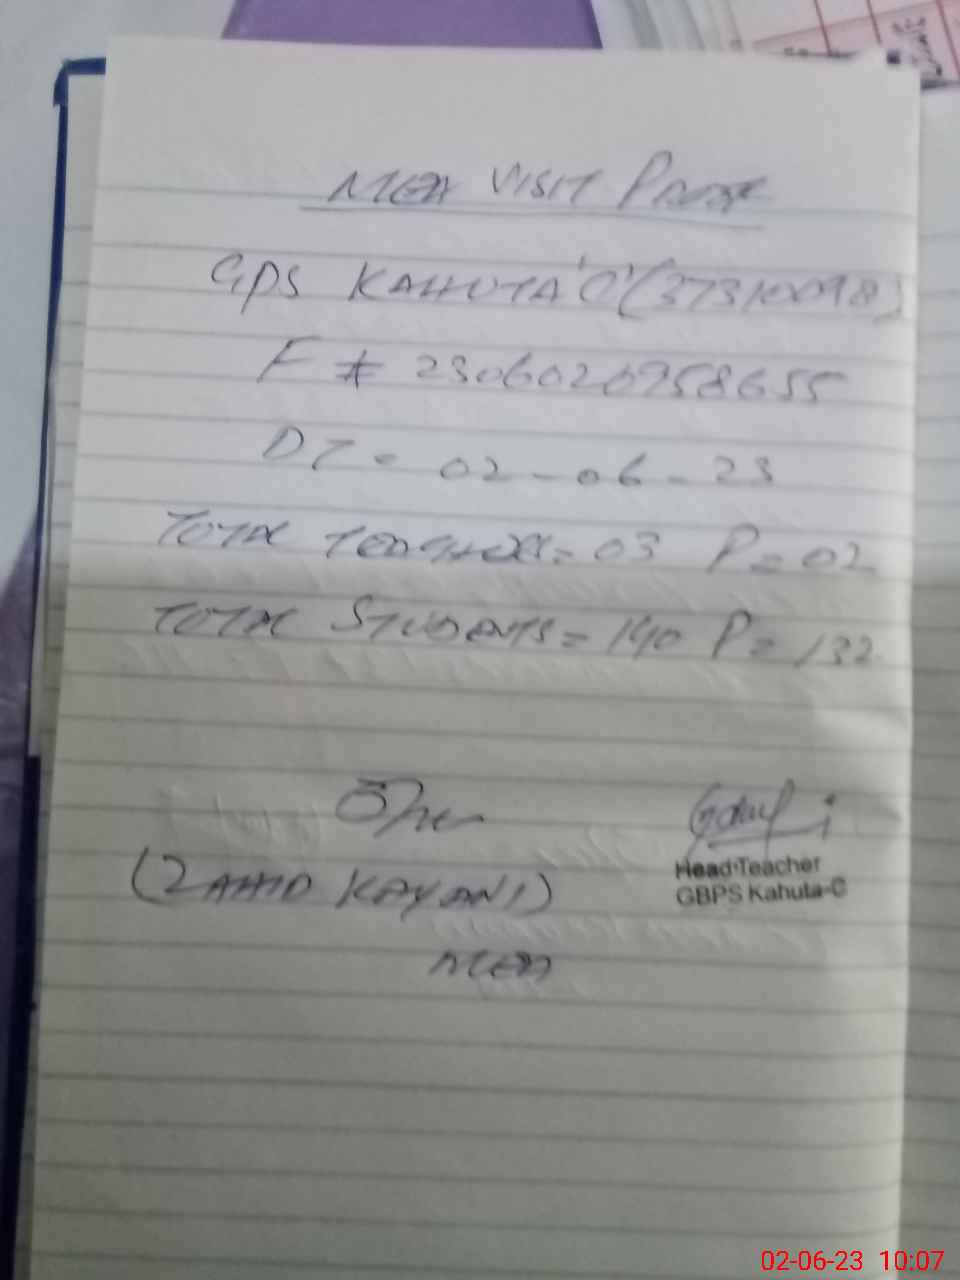 MEA VISIT PROOF
GPS KAHUTA 'C' (37310098)
F # 2306020958655
DT = 02-06-23
TOTAL TEACHERS = 03 P = 02
TOTAL STUDENTS = 140 P = 132
Head Teacher
GBPS Kahuta-C
(ZAHID KAYANI)
MEA
02-06-23 10:07